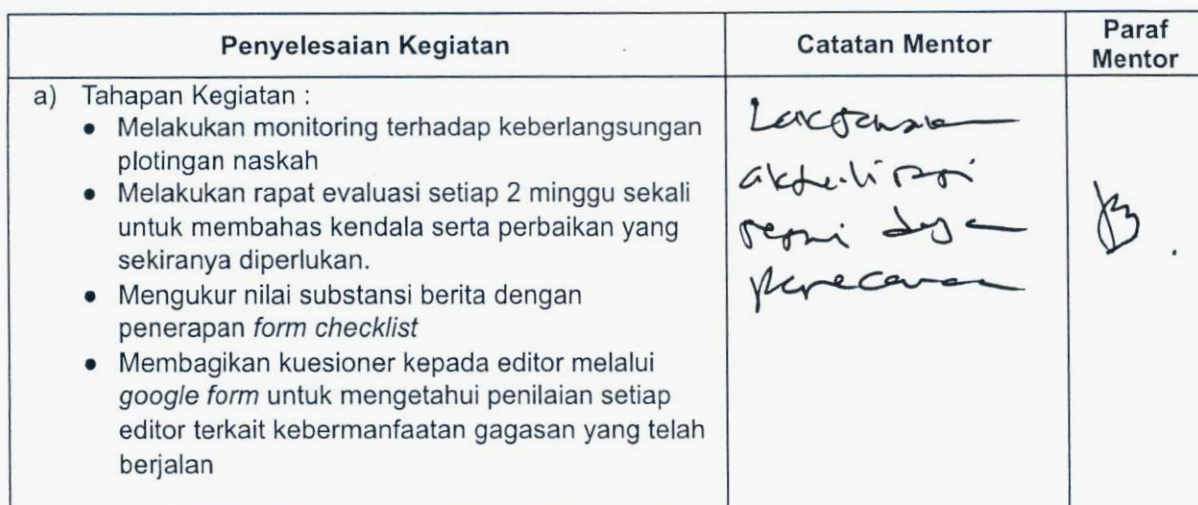 Penyelesaian Kegiatan
Catatan Mentor
Paraf
Mentor
a) Tahapan Kegiatan :
• Melakukan monitoring terhadap keberlangsungan
plotingan naskah
• Melakukan rapat evaluasi setiap 2 minggu sekali
untuk membahas kendala serta perbaikan yang
sekiranya diperlukan.
• Mengukur nilai substansi berita dengan
penerapan form checklist
• Membagikan kuesioner kepada editor melalui
google form untuk mengetahui penilaian setiap
editor terkait kebermanfaatan gagasan yang telah
berjalan
Laksanakan
aktualisasi